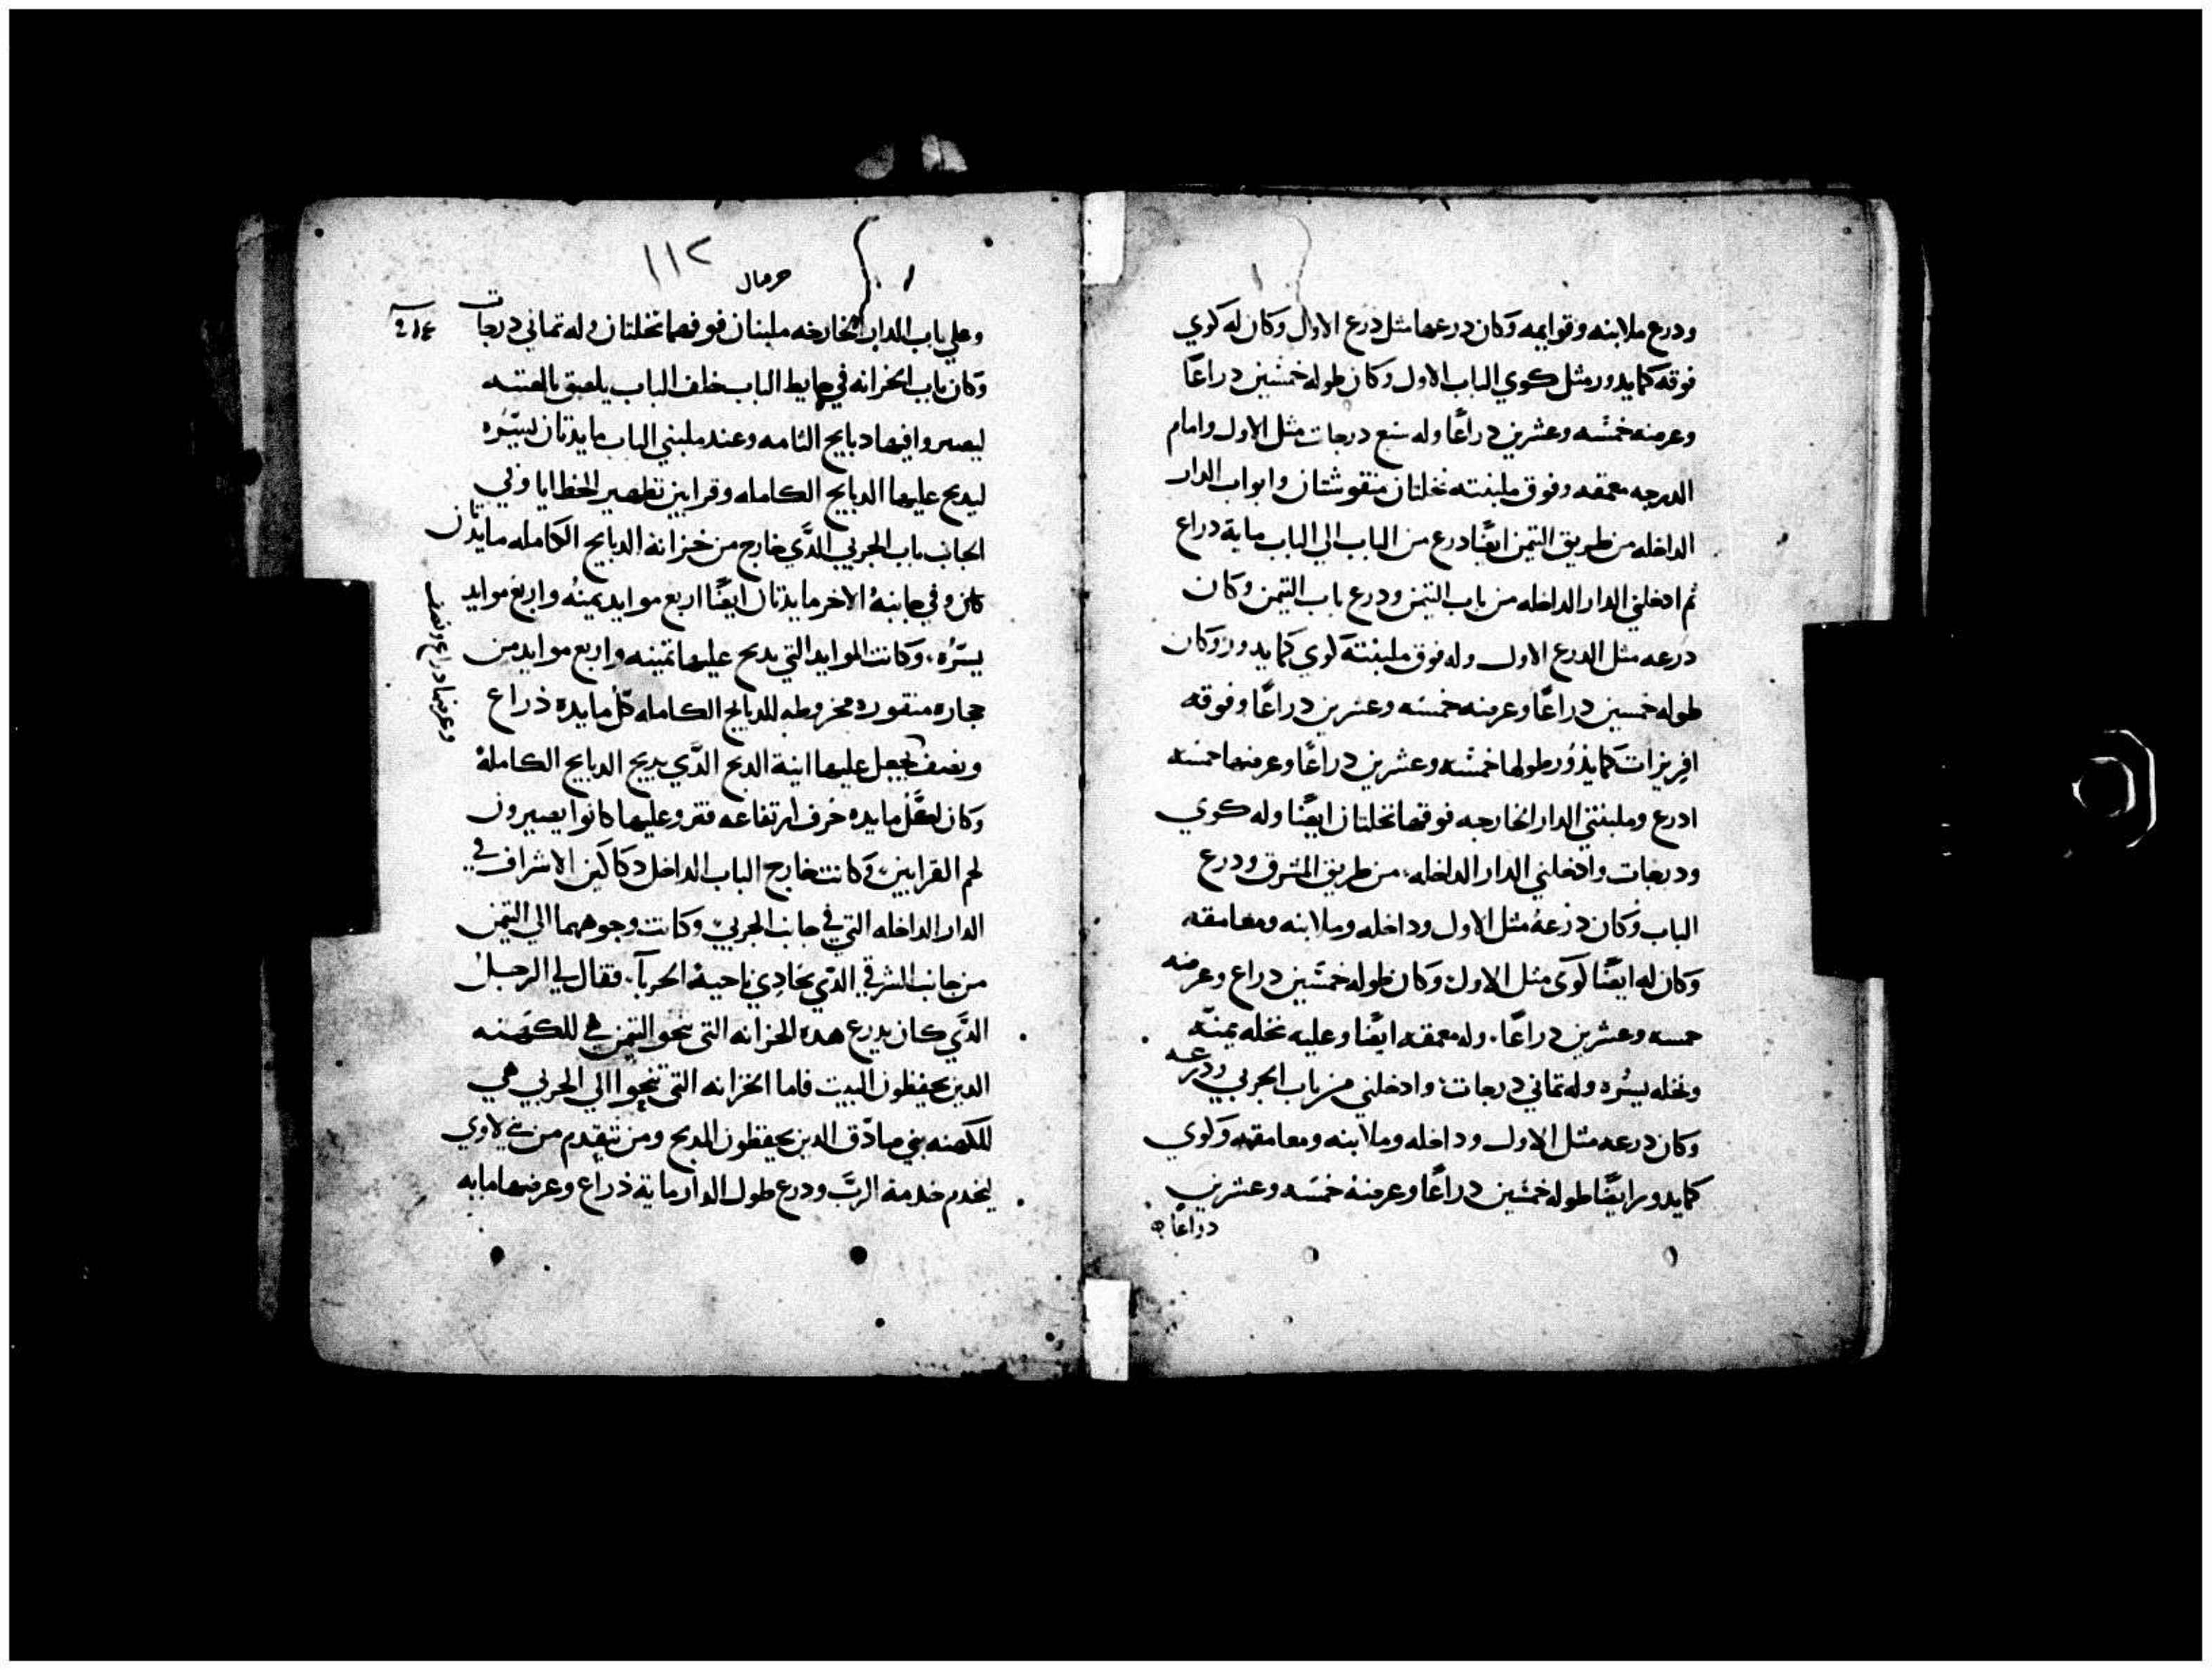 ودرع ملابنه وقوايمه وكان درعها مثل درع الاول وكان له كوي
فوقه كما يدور مثل كوي الباب الاول وكان طوله خمسين دراعًا
وعرضه خمسه وعشرين دراعًا وله سبع درجات مثل الاول وامام
الدرجه معمقه وفوق ملبنته نخلتان منقوشتان وابواب الدار
الداخله من طريق التيمن ايضًا درع من الباب الي الباب مايه دراع
ثم ادخلني الدار الداخله من باب التيمن ودرع باب التيمن وكان
درعه مثل الدرع الاول وله فوق ملبنته كوي كما يدور وكان
طوله خمسين دراعًا وعرضه خمسه وعشرين دراعًا وفوقه
افريزات كما يدور طولها خمسه وعشرين دراعًا وعرضها خمسه
ادرع وملبنتي الدار الخارجه فوقها نخلتان ايضًا وله كوي
ودرجات وادخلني الدار الداخله من طريق المشرق ودرع
الباب وكان درعه مثل الاول وداخله وملابنه ومعامقه
وكان له ايضًا كوي مثل الاول وكان طوله خمسين دراع وعرضه
خمسه وعشرين دراعًا. وله معمقه ايضًا وعليه نخله يمنه
ونخله يسره وله تماني درجات وادخلني من باب الجربي ودرعه
وكان درعه مثل الاول وداخله وملابنه ومعامقه وكوي
كما يدور ايضًا طوله خمسين دراعًا وعرضه خمسه وعشرين
دراعًا
١١٢
حزقيال
وعلي باب الدار الخارجه ملبنان فوقهما نخلتان وله تماني درجات
وكان باب الخزانه في حايط الباب خلف الباب يلصق بالعتبه
ليصيروا فيها دبايح التامه وعند ملبني الباب مايدتان يسره
ليدبح عليها الدبايح الكامله وقرابين تطهير الخطايا وفي
الجانب باب الجربي الدي خارج من خزانة الدبايح الكامله مايدتان
كان وفي جانبه الاخر مايدتان ايضًا اربع موايد يمنه واربع موايد
يسره. وكانت الموايد التي يدبح عليها تمنيه واربع موايد من
حجاره منقوره مخروطه للدبايح الكامله كل مايده ذراع
ونصف يجعل عليها انية الدبح الدي يدبح الدبايح الكاملة
وعرضها دراع ونصف
وكان لكل مايده حرف ارتفاعه فتر وعليها كانوا يصيرون
لحم القرابين وكانت خارج الباب الداخل دكاكين الاشراف في
الدار الداخله التي في جانب الجربي وكانت وجوهها الي التيمن
من جانب الشرقي الدي يحادي ناحية الجربا. فقال لي الرجل
الدي كان يدرع هده الخزانه التي نحو التيمن هي للكهنه
الدين يحفظون البيت فاما الخزانه التي تنحوا الي الجربي هي
للكهنه بني صادق الدين يحفظون المدبح ومن تقدم من بني لاوي
ليخدم خدمة الرب ودرع طول الدار ماية ذراع وعرضها مايه